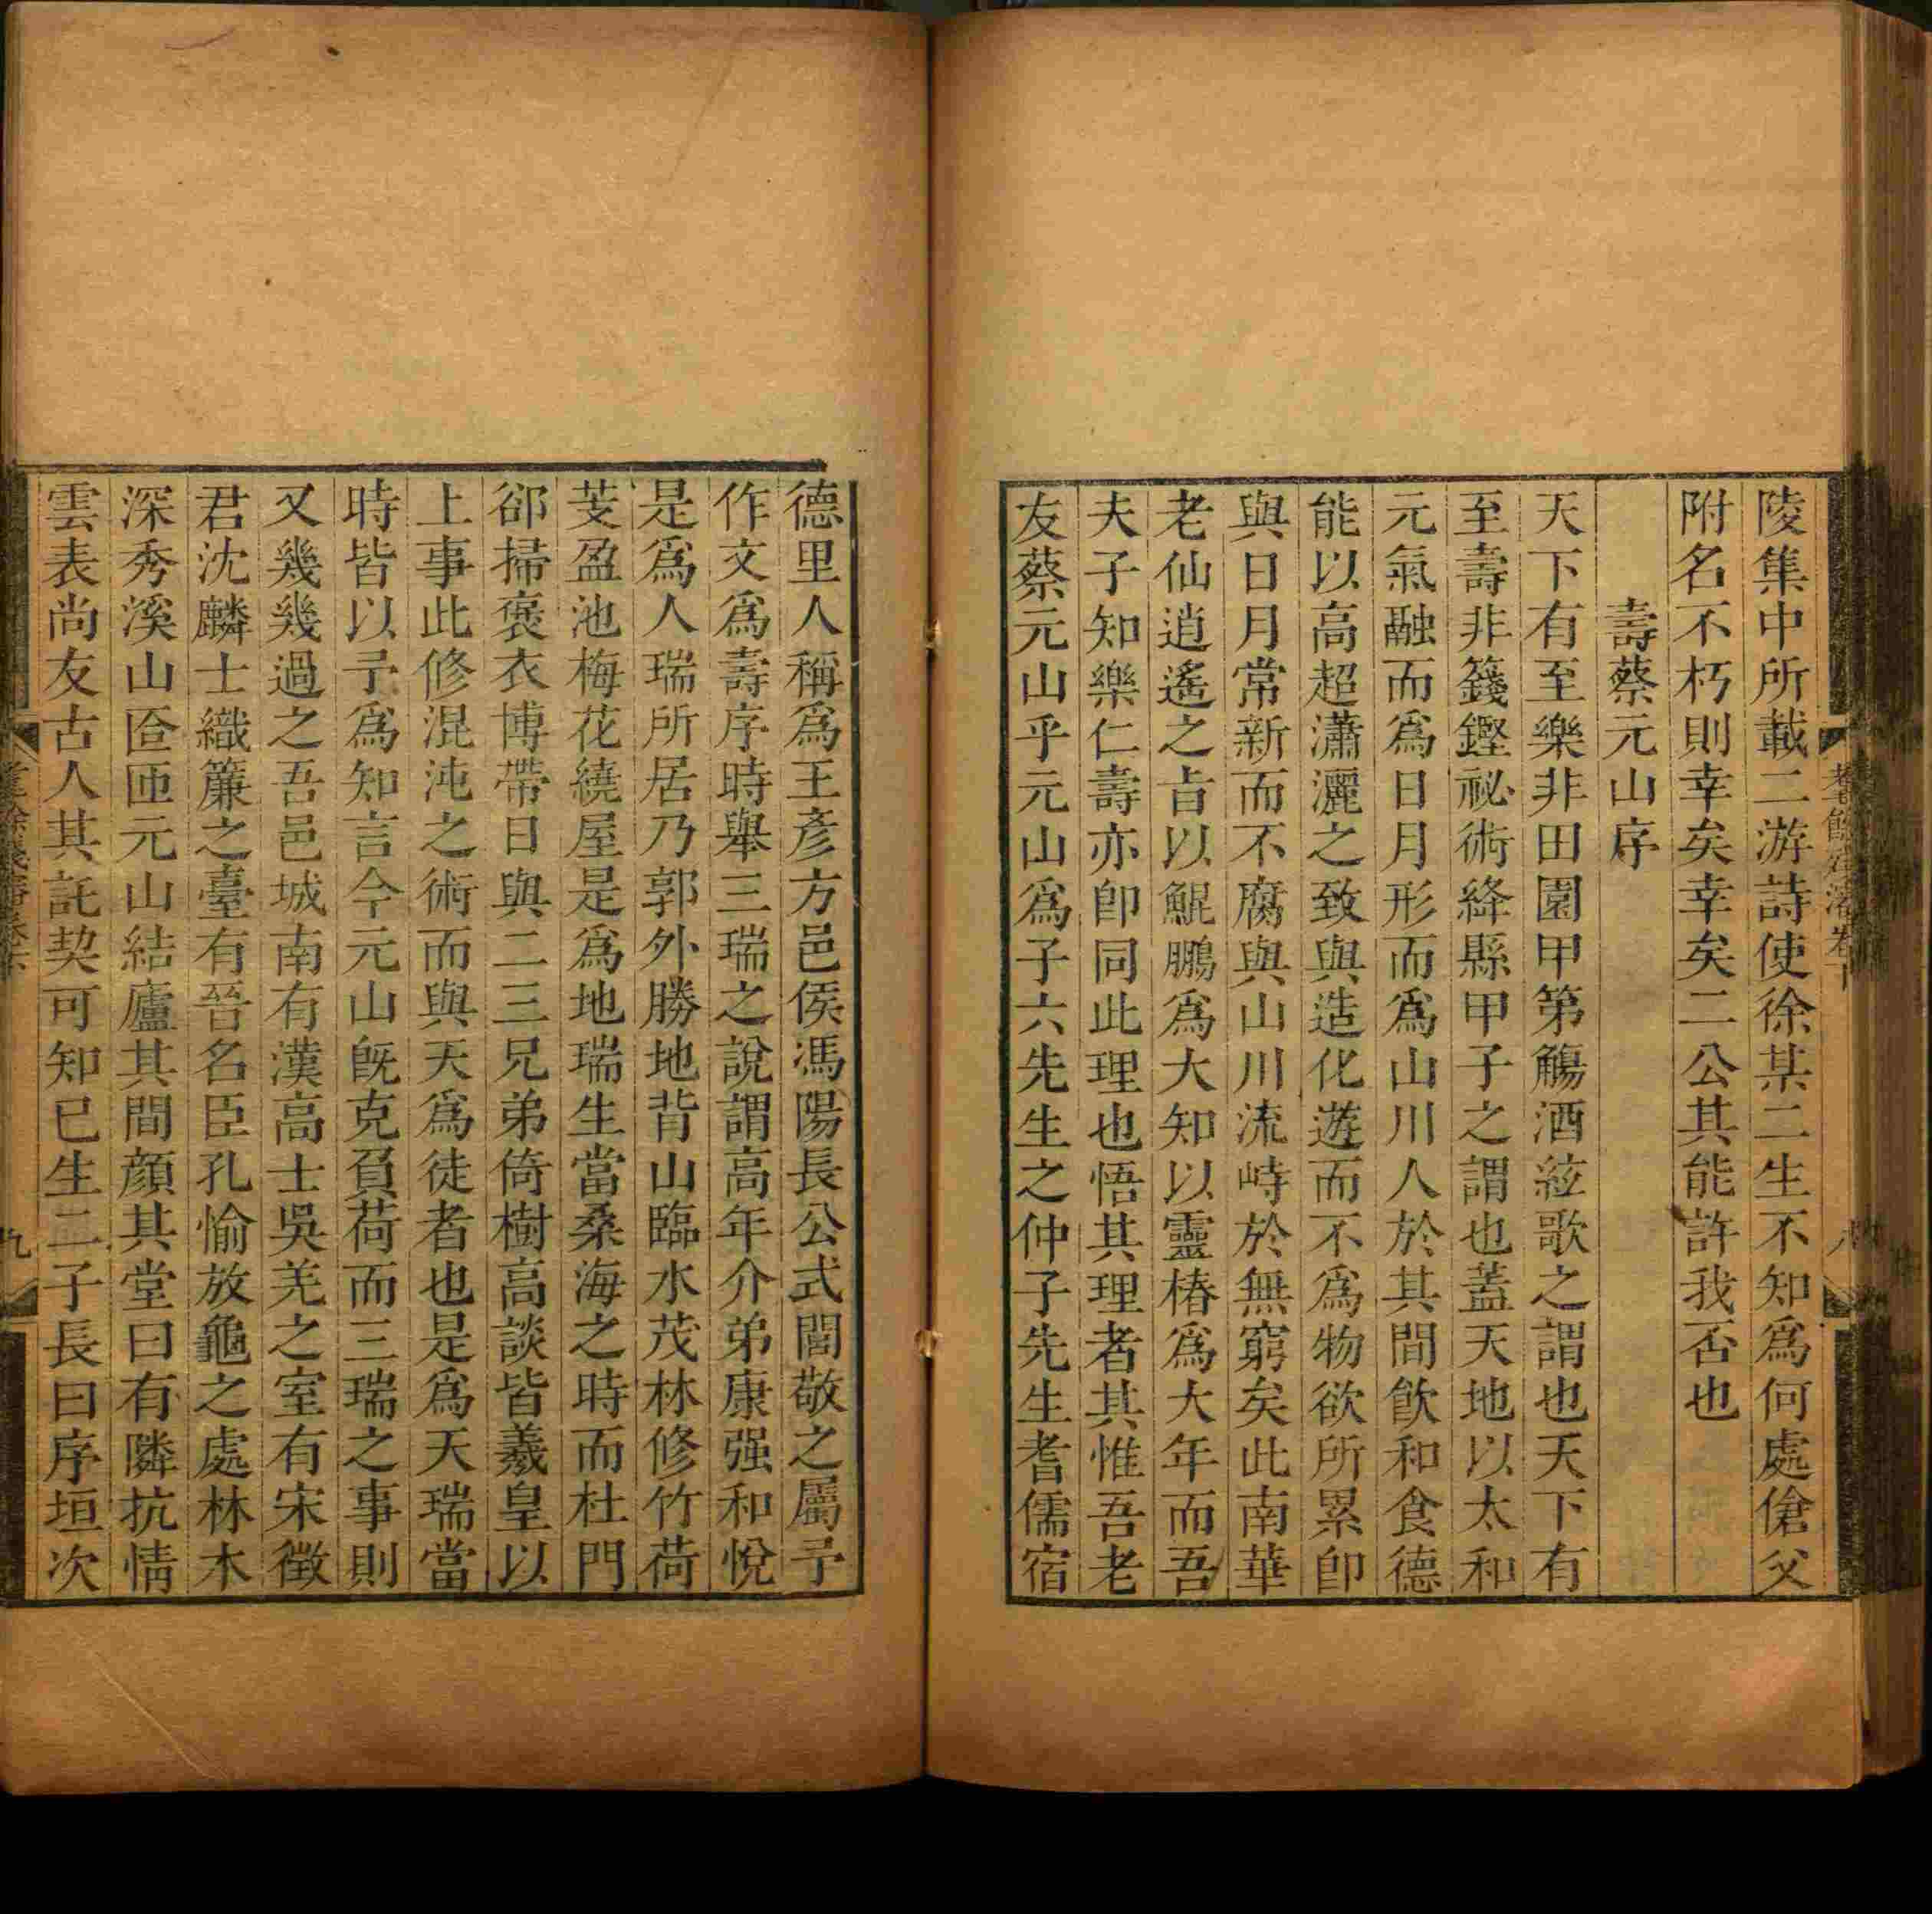 陵集中所載二游詩使徐某二生不知爲何處傖父
附名不朽則幸矣幸矣二公其能許我否也
壽蔡元山序
天下有至樂非田園甲第觴酒絃歌之謂也天下有
至壽非籛鏗祕術絳縣甲子之謂也蓋天地以太和
元氣融而爲日月形而爲山川人於其間飮和食德
能以高超瀟灑之致與造化遊而不爲物欲所累卽
與日月常新而不腐與山川流峙於無窮矣此南華
老仙逍遙之旨以鯤鵬爲大知以靈椿爲大年而吾
夫子知樂仁壽亦卽同此理也悟其理者其惟吾老
友蔡元山乎元山爲子六先生之仲子先生耆儒宿
德里人稱爲王彥方邑侯馮陽長公式閭敬之屬予
作文爲壽序時舉三瑞之說謂高年介弟康强和悅
是爲人瑞所居乃郭外勝地背山臨水茂林修竹荷
芰盈池梅花繞屋是爲地瑞生當桑海之時而杜門
卻掃褒衣博帶日與二三兄弟倚樹高談皆羲皇以
上事此修混沌之術而與天爲徒者也是爲天瑞當
時皆以予爲知言今元山旣克負荷而三瑞之事則
又幾幾過之吾邑城南有漢高士吳羌之室有宋徵
君沈麟士織簾之臺有晉名臣孔愉放龜之處林木
深秀溪山匼匝元山結廬其間顏其堂曰有隣抗情
雲表尚友古人其託契可知已生二子長曰序垣次
九